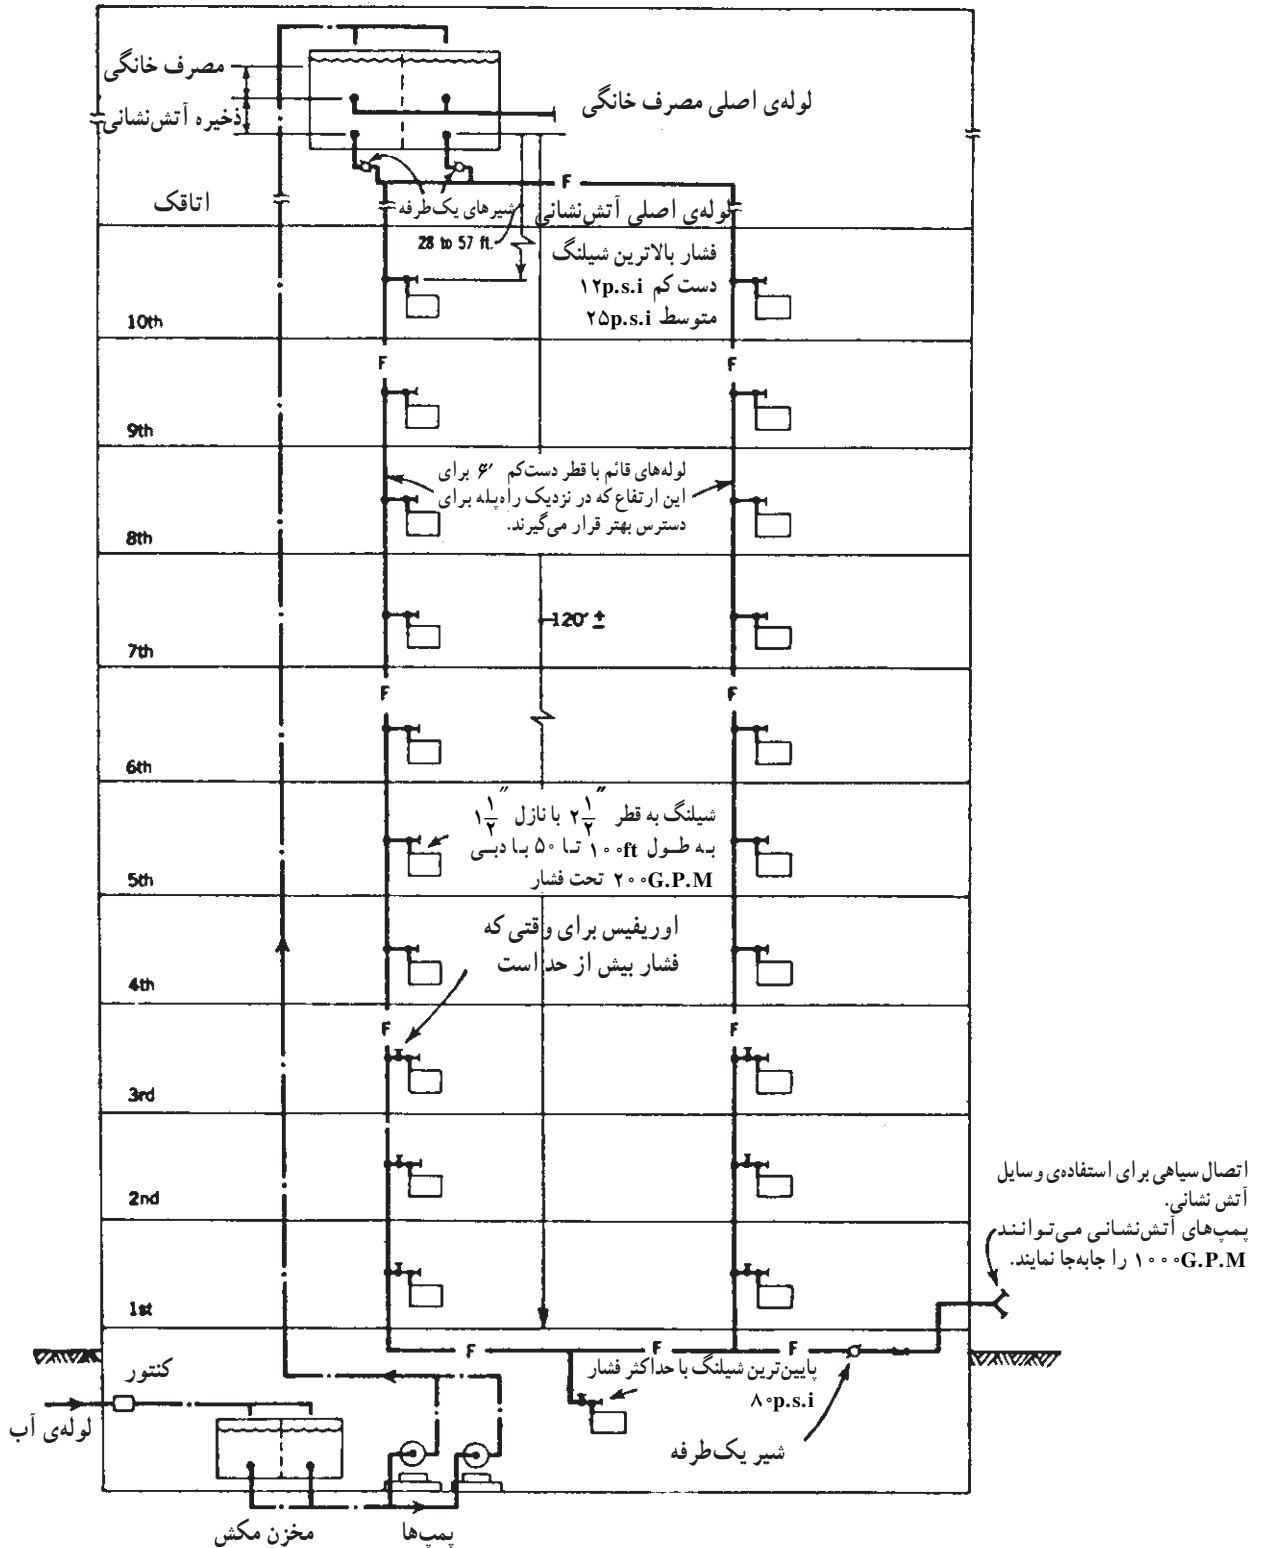 مصرف خانگی
ذخیره آتش‌نشانی
لوله‌ی اصلی مصرف خانگی
F
اتاقک
شیرهای یک‌طرفه
لوله‌ی اصلی آتش‌نشانی
28 to 57 ft.
فشار بالاترین شیلنگ
دست کم ۱۲p.s.i
متوسط ۲۵p.s.i
10th
F
F
9th
لوله‌های قائم با قطر دست‌کم ۶″ برای
این ارتفاع که در نزدیک راه‌پله برای
دسترس بهتر قرار می‌گیرند.
8th
120′ ±
7th
F
F
6th
شیلنگ به قطر ۲ ۱/۲″ با نازل ۱ ۱/۲″
به طول ۱۰۰ft تا ۵۰ با دبی
۲۰۰G.P.M تحت فشار
5th
اوریفیس برای وقتی که
فشار بیش از حد است
4th
F
F
3rd
2nd
اتصال سیاهی برای استفاده‌ی وسایل
آتش نشانی.
پمپ‌های آتش‌نشانی می‌توانند
۱۰۰۰G.P.M را جابه‌جا نمایند.
1st
F
F
F
پایین‌ترین شیلنگ با حداکثر فشار
۸۰p.s.i
کنتور
لوله‌ی آب
شیر یک‌طرفه
مخزن مکش
پمپ‌ها